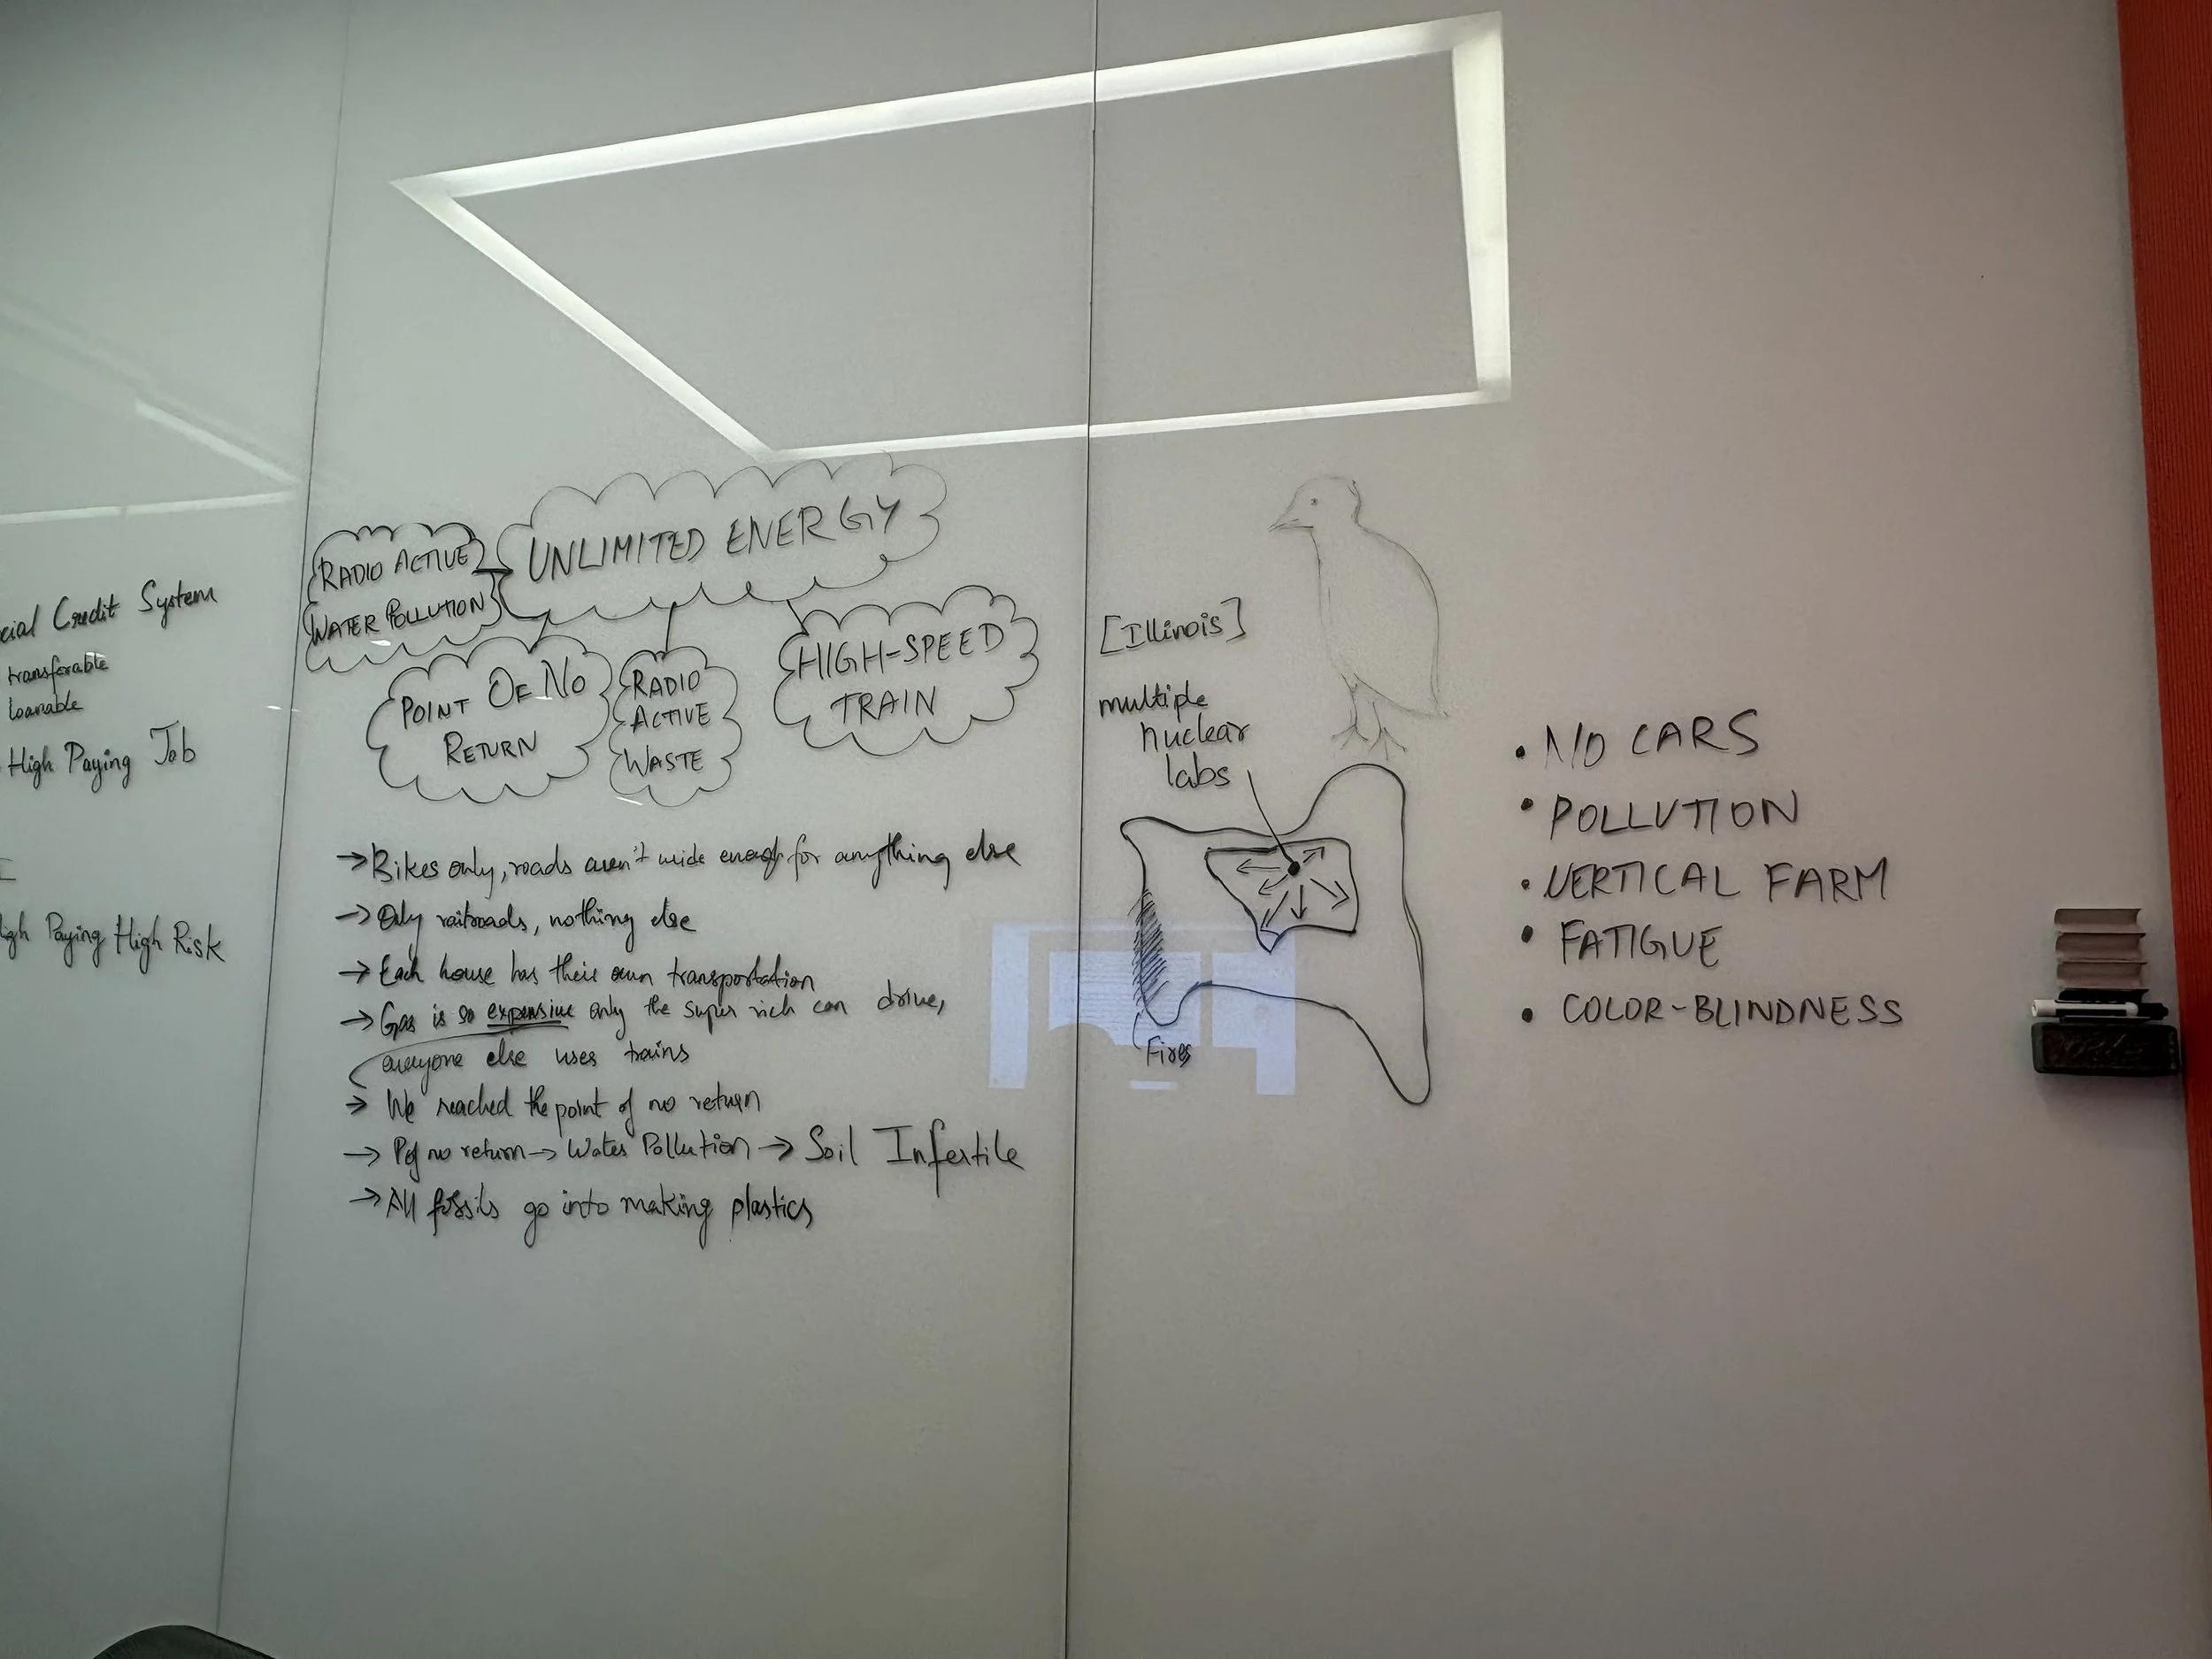 cial Credit System
transferable
loanable
High Paying Job
igh Paying High Risk
RADIO ACTIVE
WATER POLLUTION
UNLIMITED ENERGY
POINT OF NO
RETURN
RADIO
ACTIVE
WASTE
HIGH-SPEED
TRAIN
→ Bikes only, roads aren't wide enough for anything else
→ Only railroads, nothing else
→ Each house has their own transportation
→ Gas is so expensive only the super rich can drive,
everyone else uses trains
→ We reached the point of no return
→ P of no return → Water Pollution → Soil Infertile
→ All fossils go into making plastics
[Illinois]
multiple
nuclear
labs
Fires
• NO CARS
• POLLUTION
• VERTICAL FARM
• FATIGUE
• COLOR-BLINDNESS